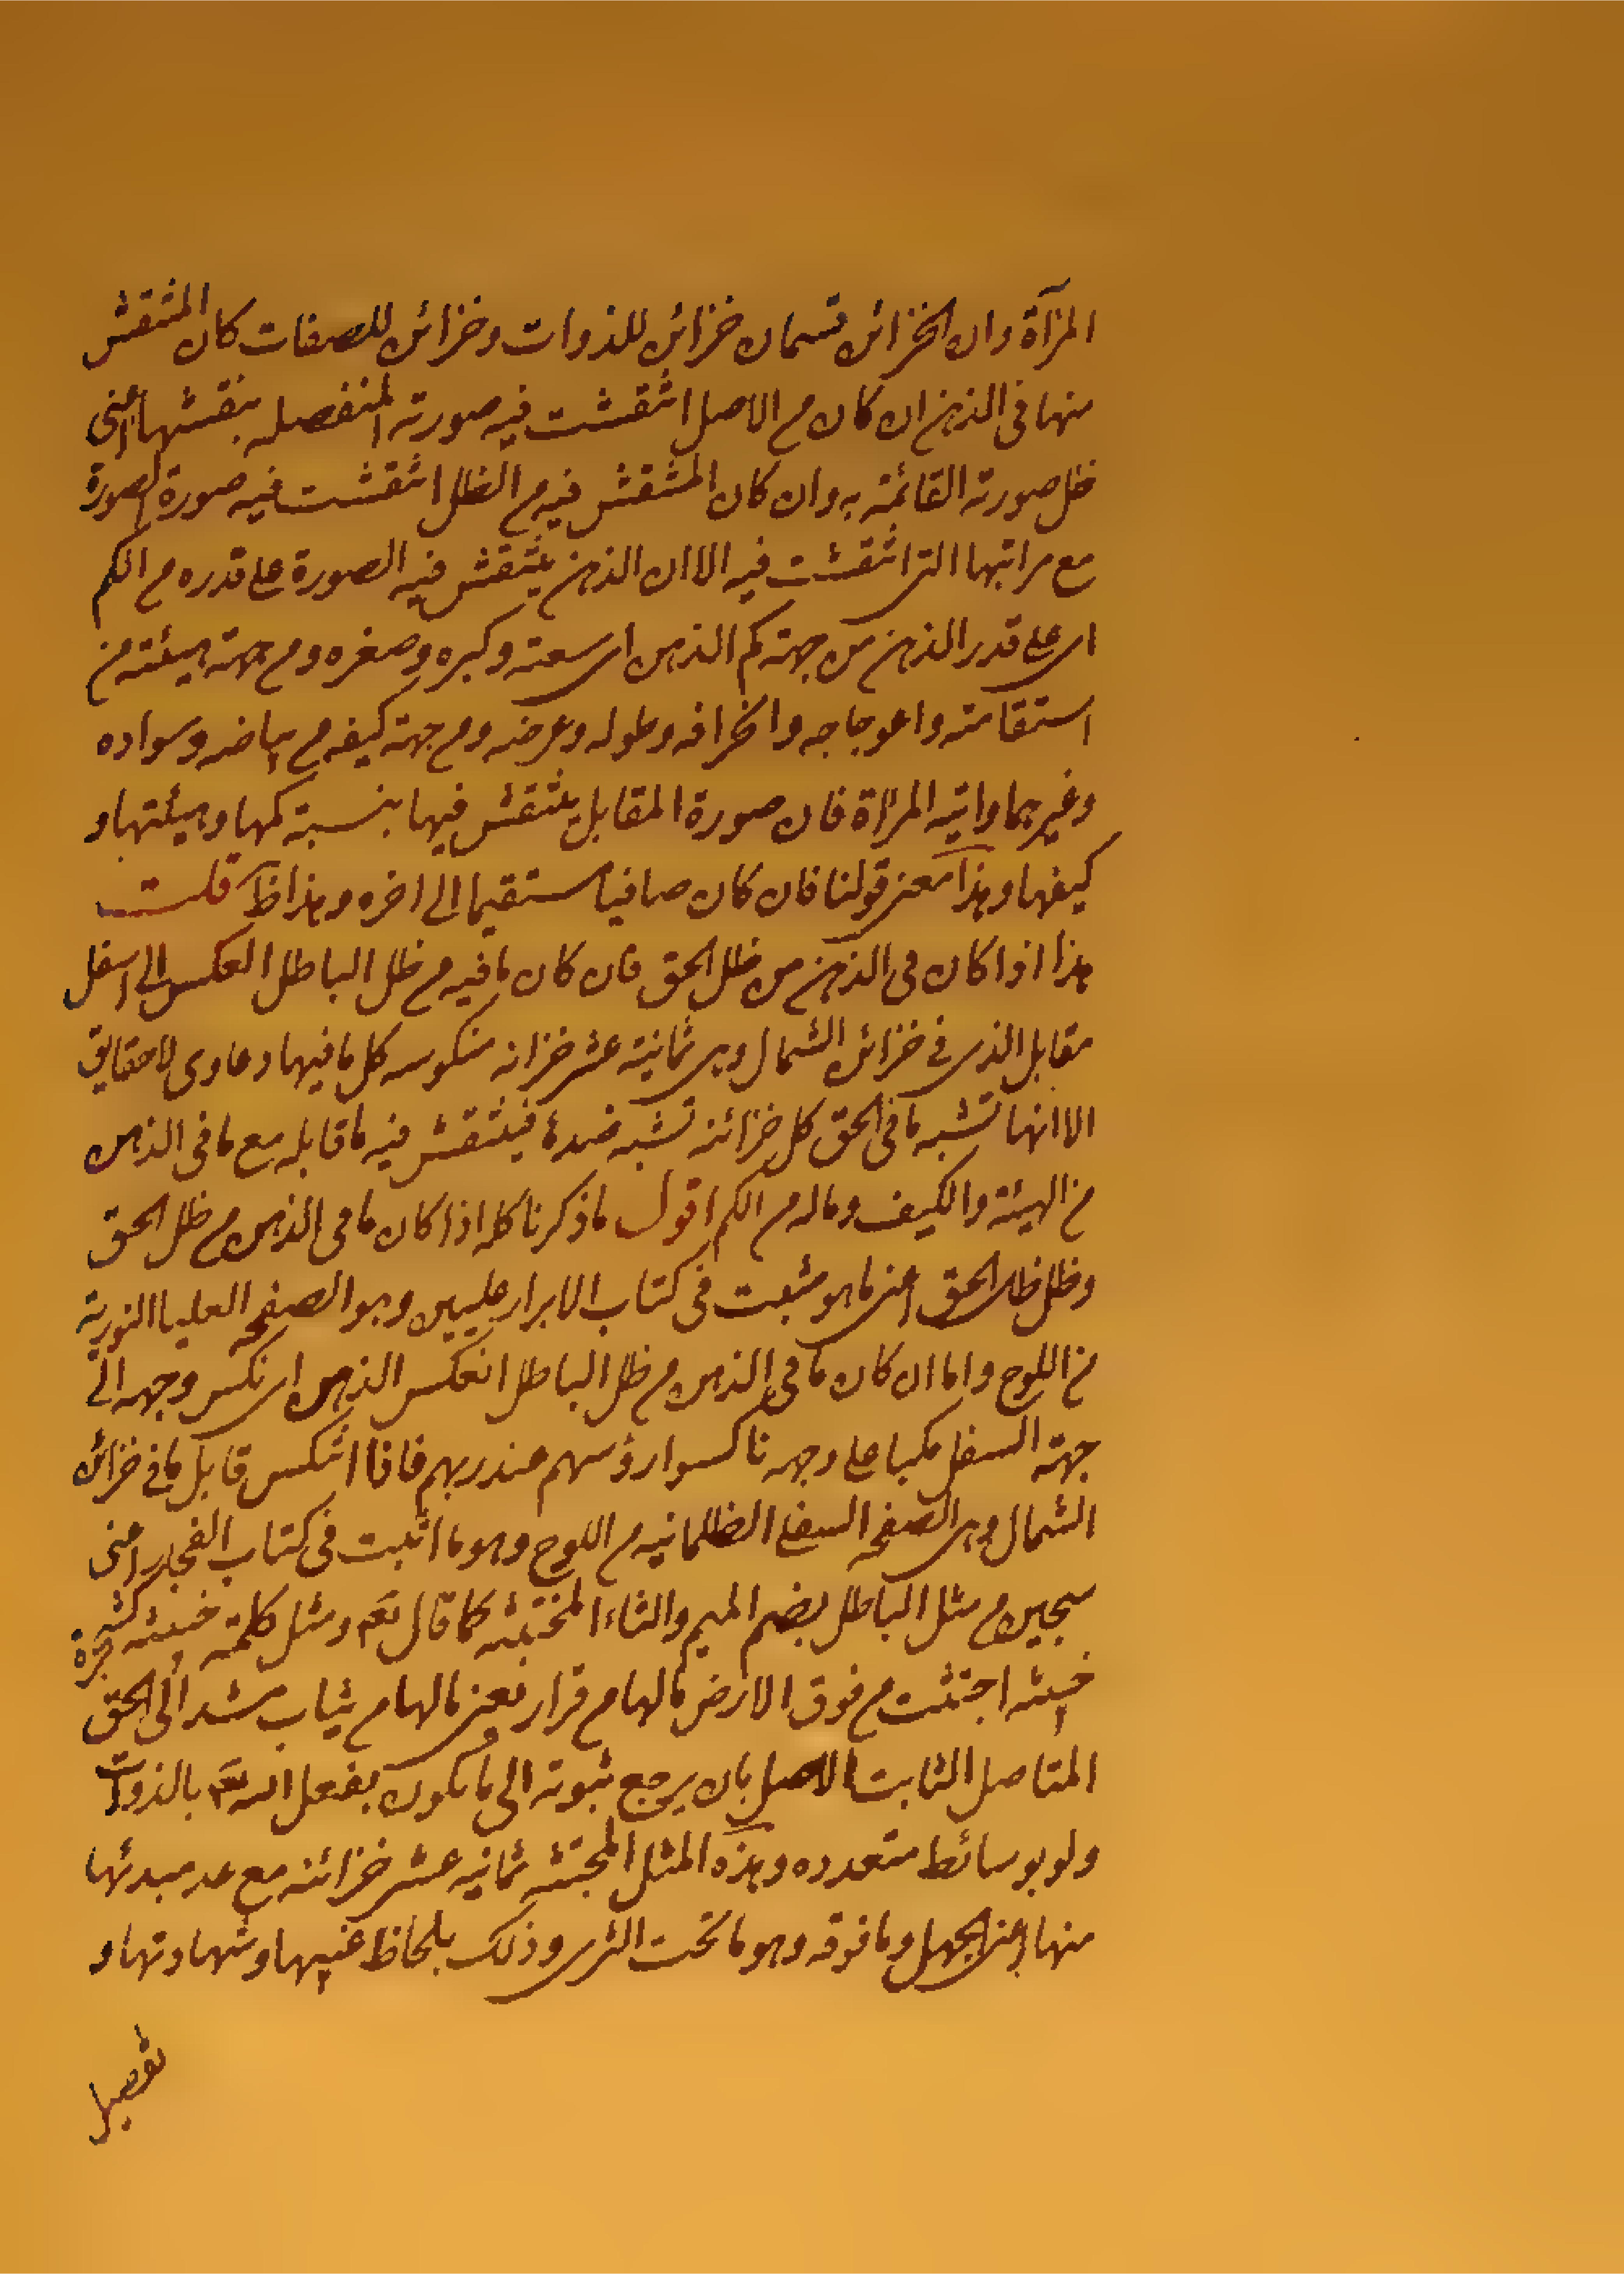 المرآة وان الخزائن قسمان خزائن للذوات وخزائن للصفات كان المنتقش
منها فى الذهن ان كان من الاصل انتقشت فيه صورته المنفصله بنقشها اعنى
ظل صورته القائمة به وان كان المنتقش فيه من الظل انتقشت فيه صورة الصورة
مع مراتبها التى انتقشت فيه الا ان الذهن ينتقش فيه الصورة على قدره من الكم
اى على قدر الذهن من جهة كم الذهن اى سعته وكبره وصغره ومن جهة هيئته من
استقامته واعوجاجه وانحرافه وطوله وعرضه ومن جهة كيفه من بياضه وسواده
وغيرهما واتيه المرآة فان صورة المقابل ينتقش فيها بنسبة كمها وهيئتها و
كيفها وهذا معنى قولنا فان كان صافيا مستقيما الى اخره وهذا ظ قلت
هذا اذا كان فى الذهن من ظل الحق فان كان ما فيه من ظل الباطل انعكس الى اسفل
مقابل الذى فى خزائن الشمال وهى ثمانية عشر خزانه منكوسه كل ما فيها دعاوى لا حقايق
الا انها تشبه ما فى الحق كل خزائنه تشبه ضدها فينتقش فيه ما قابله مع ما فى الذهن
من الهيئة والكيف وماله من الكم اقول ما ذكرنا كله اذا كان ما فى الذهن من ظل الحق
وظل ظل الحق اعنى ما هو مثبت فى كتاب الابرار عليين وهو الصفحه العليا النورية
من اللوح واما ان كان ما فى الذهن من ظل الباطل انعكس الذهن اى نكس وجهه الى
جهة السفل مكبا على وجهه ناكسوا رؤسهم عند ربهم فاذا انتكس قابل ما فى خزائن
الشمال وهى الصفحه السفلى الظلمانيه من اللوح وهو ما اثبت فى كتاب الفجار اعنى
سجين من مثل الباطل بضم الميم والثاء المجتثه كما قال تع ومثل كلمة خبيثه كشجرة
خبيثه اجتثت من فوق الارض ما لها من قرار يعنى ما لها من ثبات مستند الى الحق
المتاصل الثابت الاصل بان يرجع ثبوته الى ما يكون بفعل الله تع بالذات
ولو بوسائط متعدده وهذه المثل المجتثه ثمانيه عشر خزائنه مع عد مبدئها
منها اعنى الجهل وما فوقه وهو ما تحت الثرى وذلك بلحاظ غيبها وشهادتها و
تفصيل